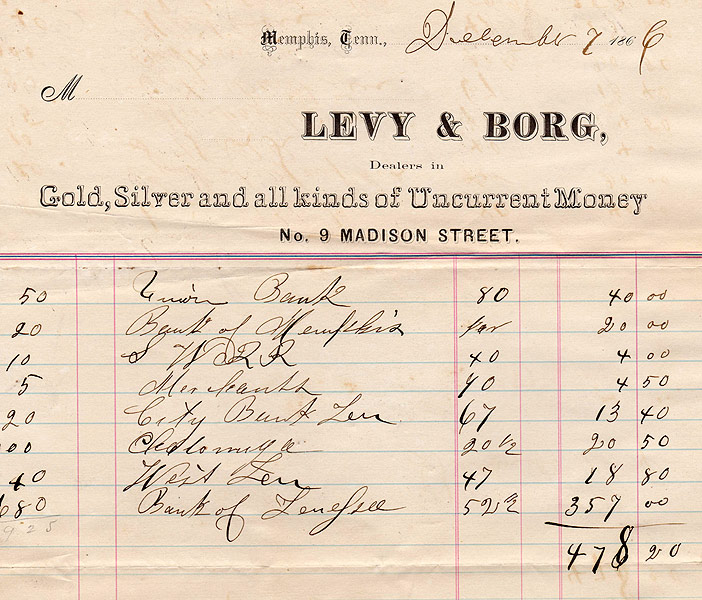 Memphis, Tenn., December 7 1866
M
LEVY & BORG,
Dealers in
Gold, Silver and all kinds of Uncurrent Money
No. 9 MADISON STREET.
50 Union Bank 80 40 00
20 Bank of Memphis par 20 00
10 S W R R 40 4 00
5 Merchants 90 4 50
20 City Bank Ten 67 13 40
00 20 1/2 20 50
40 West Ten 47 18 80
680 Bank of Tenessee 52 1/2 357 00
925
478 20